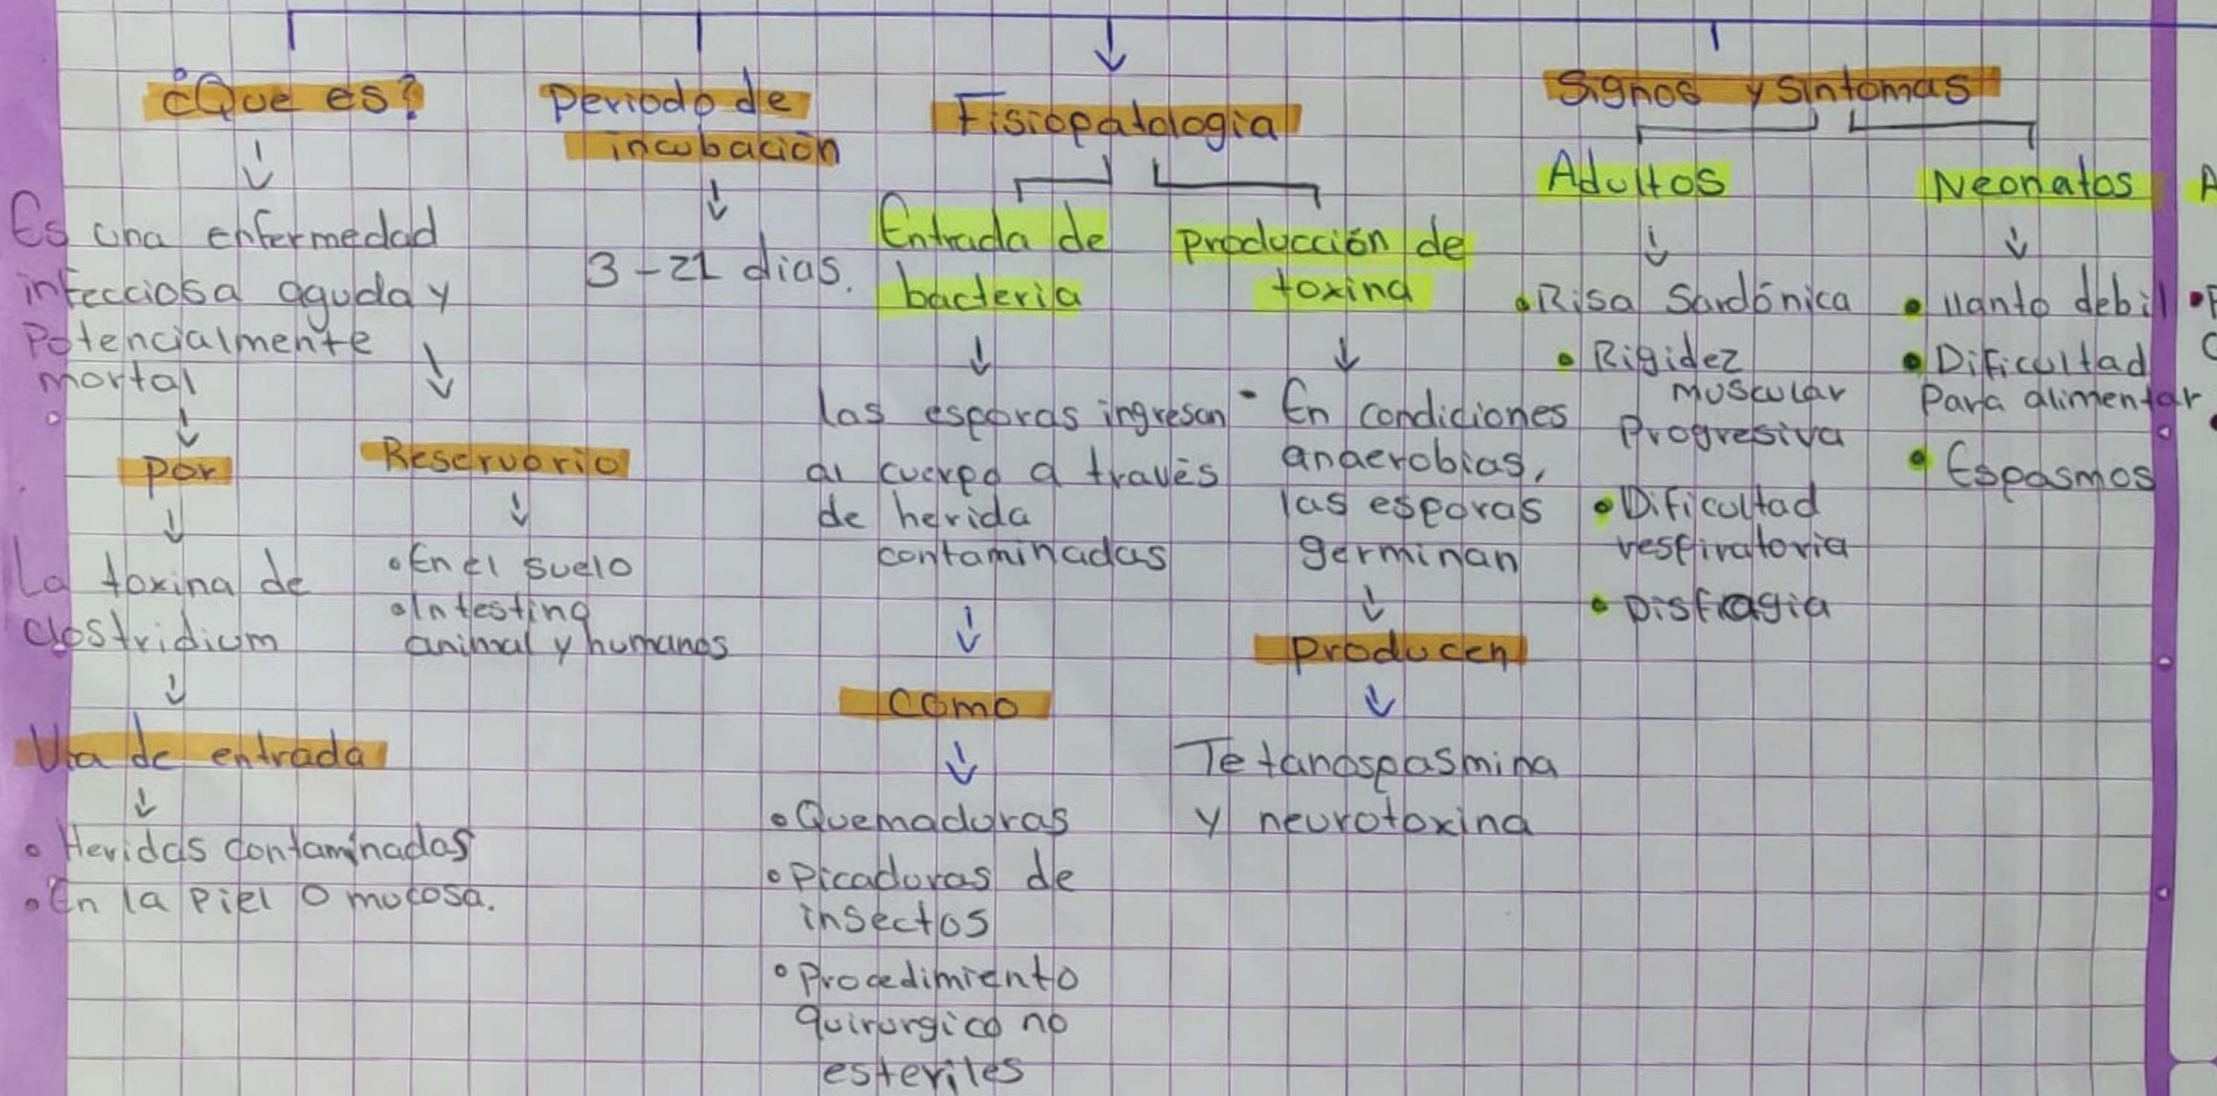 ¿Que es?
Es una enfermedad
infecciosa aguda y
Potencialmente
mortal
Por
La toxina de
clostridium
Via de entrada
• Heridas contaminadas
• En la Piel o mucosa.
Periodo de
incubación
3-21 dias.
Reservorio
• En el suelo
• Intestino
animal y humanos
Fisiopatologia
Entrada de
bacteria
las esporas ingresan
al cuerpo a través
de herida
contaminadas
Como
• Quemaduras
• Picaduras de
insectos
• Procedimiento
quirurgico no
esteriles
Producción de
toxina
- En condiciones
anaerobias,
las esporas
germinan
Producen
Tetanospasmina
y neurotoxina
Signos y sintomas
Adultos
• Risa Sardónica
• Rigidez
muscular
Progresiva
• Dificultad
respiratoria
• Disfagia
Neonatos
• llanto debil
• Dificultad
Para alimentar
• Espasmos